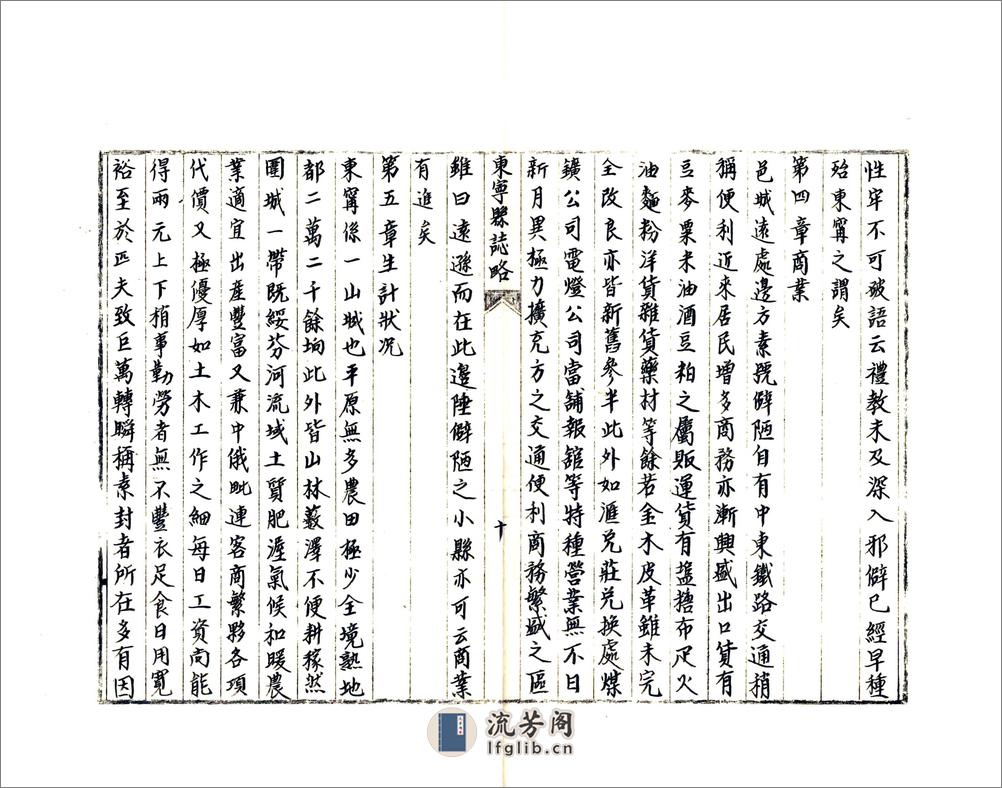 性牢不可破語云禮教未及深入邪僻已經早種
殆東甯之謂矣
第四章商業
邑城遠處邊方素旣僻陋自有中東鐵路交通稍
稱便利近來居民增多商務亦漸興盛出口貨有
豆麥粟米油酒豆粕之屬販運貨有塩糖布疋火
油麵粉洋貨雜貨藥材等餘若金木皮革雖未完
全改良亦皆新舊參半此外如滙兌莊兌換處煤
鑛公司電燈公司當舖報舘等特種營業無不日
新月異極力擴充方之交通便利商務繁盛之區
東寧縣誌略
十
雖曰遠遜而在此邊陲僻陋之小縣亦可云商業
有進矣
第五章生計狀况
東甯係一山城也平原無多農田極少全境熟地
都二萬二千餘垧此外皆山林藪澤不便耕稼然
圍城一帶既綏芬河流域土質肥渥氣候和暖農
業適宜出產豐富又兼中俄毗連客商繁夥各項
代價又極優厚如土木工作之細每日工資尚能
得兩元上下稍事勤勞者無不豐衣足食日用寬
裕至於匹夫致巨萬轉瞬稱素封者所在多有因
流芳阁
lfglib.cn